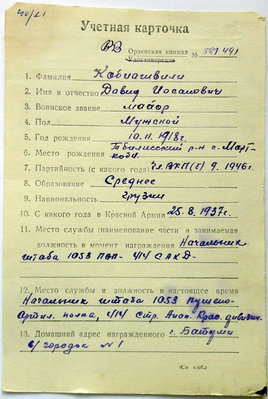 Учетная карточка
Орденская книжка
Удостоверение №
1. Фамилия Кобиашвили
2. Имя и отчество Давид Иосалович
3. Воинское звание майор
4. Пол Мужской
5. Год рождения 10.11.1918г.
6. Место рождения Тбилисский р-н с. Март-
коби
7. Партийность (с какого года) чл. ВКП(б) с 1946г.
8. Образование Среднее
9. Национальность грузин
10. С какого года в Красной Армии 25.8.1937г.
11. Место службы (наименование части и занимаемая
должность в момент награждения Начальник
штаба 1053 ПАП - 414 САКД-
12. Место службы и должность в настоящее время
Начальник штаба 1053 пушечно-
Артил. полка, 414 Стр. Анап. Крас. дивизии.
13. Домашний адрес награжденного г. Батуми
в/городок N 1